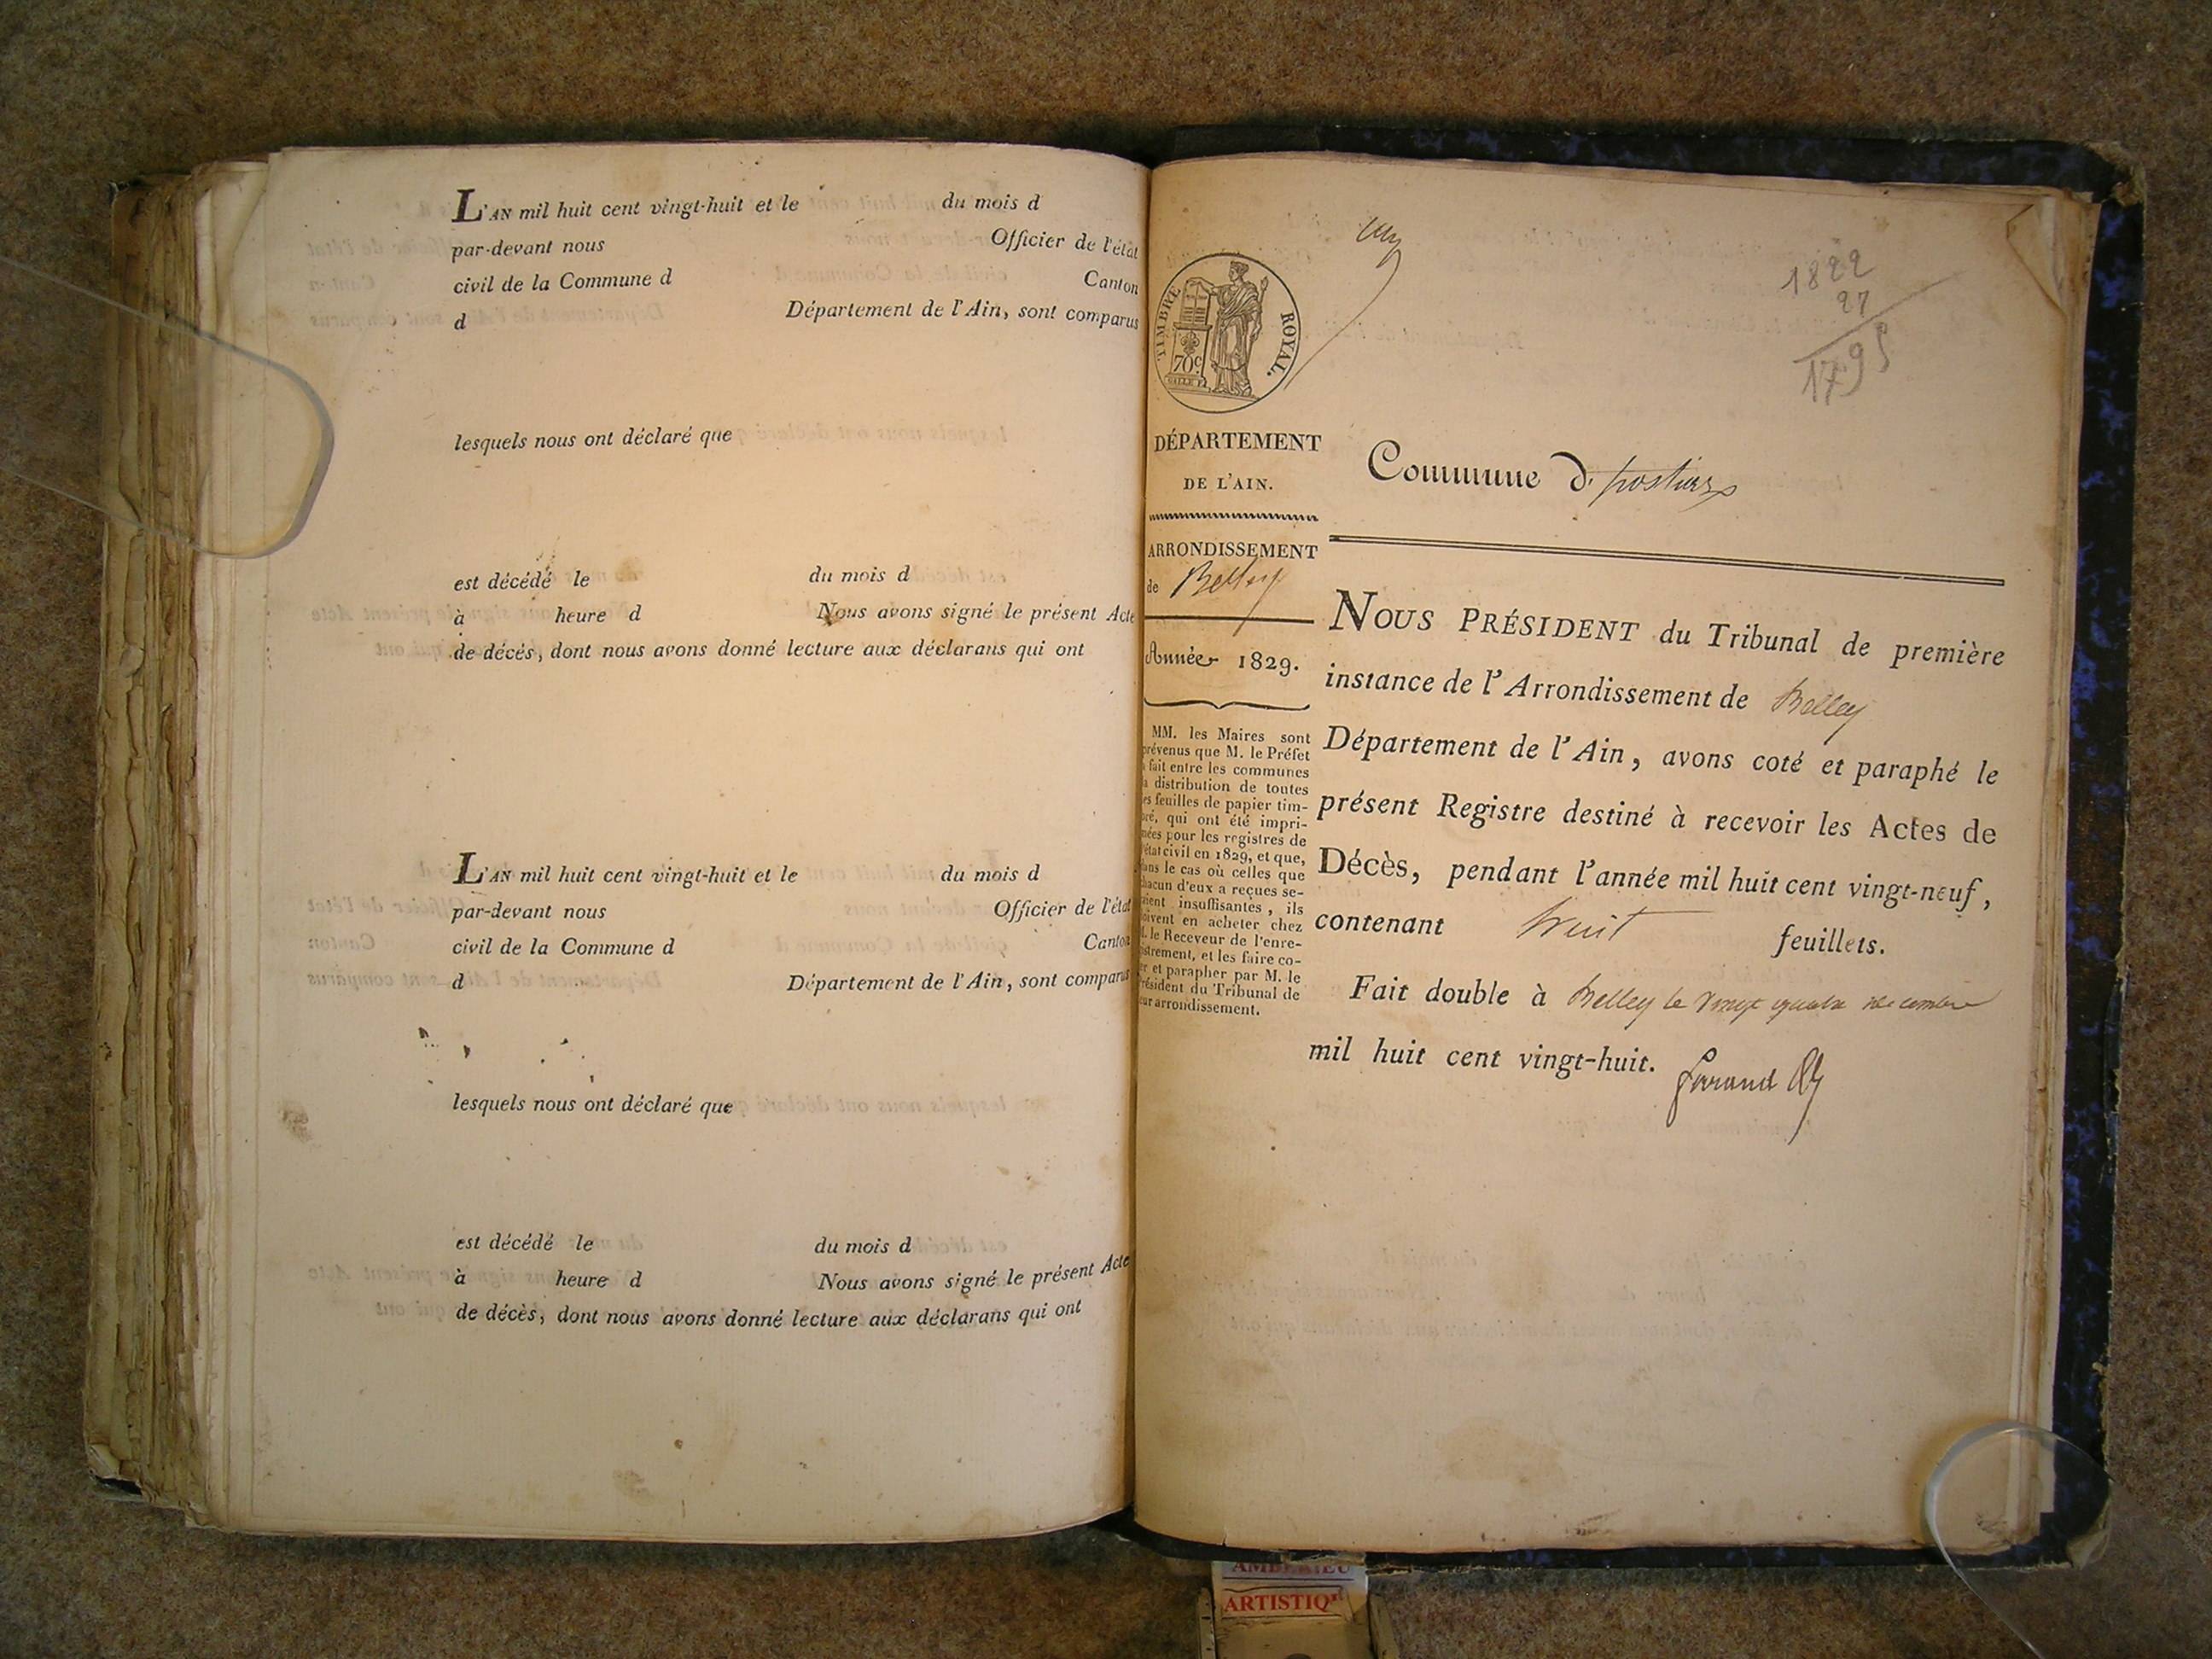 L'AN mil huit cent vingt-huit et le du mois d
par-devant nous Officier de l'état
civil de la Commune d Canton
d Département de l'Ain, sont comparus
lesquels nous ont déclaré que
est décédé le du mois d
à heure d Nous avons signé le présent Acte
de décès, dont nous avons donné lecture aux déclarans qui ont
L'AN mil huit cent vingt-huit et le du mois d
par-devant nous Officier de l'état
civil de la Commune d Canton
d Département de l'Ain, sont comparus
lesquels nous ont déclaré que
est décédé le du mois d
à heure d Nous avons signé le présent Acte
de décès, dont nous avons donné lecture aux déclarans qui ont
TIMBRE ROYAL.
70c
DÉPARTEMENT
DE L'AIN.
ARRONDISSEMENT
de Belley
Année 1829.
MM. les Maires sont
prévenus que M. le Préfet
a fait entre les communes
la distribution de toutes
les feuilles de papier tim-
bré, qui ont été impri-
mées pour les registres de
l'état civil en 1829, et que,
dans le cas où celles que
chacun d'eux a reçues se-
raient insuffisantes, ils
doivent en acheter chez
M. le Receveur de l'enre-
gistrement, et les faire co-
ter et parapher par M. le
Président du Tribunal de
leur arrondissement.
1822
27
1795
Commune d
NOUS PRÉSIDENT du Tribunal de première
instance de l'Arrondissement de Belley
Département de l'Ain, avons coté et paraphé le
présent Registre destiné à recevoir les Actes de
Décès, pendant l'année mil huit cent vingt-neuf,
contenant huit feuillets.
Fait double à Belley le vingt quatre décembre
mil huit cent vingt-huit.
AMBERIEU
ARTISTIQ